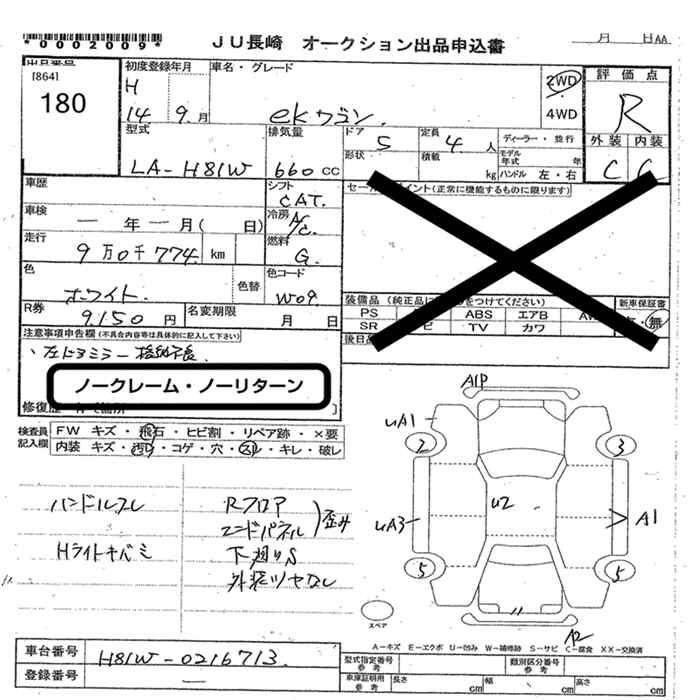 *0002009*
JU長崎 オークション出品申込書
月 日AA
出品番号
[864]
180
初度登録年月
H
14年 9月
車名・グレード
ekワゴン
2WD
4WD
評価点
R
型式
LA-H81W
排気量
660cc
ドア
5
定員
4人
ディーラー・並行
形状
積載
kg
モデル年式
年
ハンドル 左・右
外装 内装
C C
車歴
シフト
CAT.
車検
一年一月( 日)
冷房
A/C
走行
9万0千774
km
燃料
G.
色
ホワイト
色替
色コード
W09.
R券
9.150円
名変期限
月 日
セールスポイント(正常に機能するものに限ります)
装備品
PS
ABS
エアB
SR
TV
カワ
新車保証書
無
注意事項申告欄(不具合内容等は具体的に記入して下さい)
左ドアミラー格納不良
ノークレーム・ノーリターン
検査員記入欄
FW キズ・飛石・ヒビ割・リペア跡・×要
内装 キズ・汚れ・コゲ・穴・スレ・キレ・破レ
ハンドルスレ
Rフロア
エンドパネル
歪み
Hライトキバミ
下廻りS
外装ツヤなし
A1P
uA1
2
3
uA3
U2
A1
5
5
A2
スペア
A-キズ E-エクボ U-凹み W-補修跡 S-サビ C-腐食 XX-交換済
車台番号
H81W-0216713.
登録番号
型式指定番号
参考
類別区分番号
参考
車庫証明用
参考
長さ
cm
幅
cm
高さ
cm